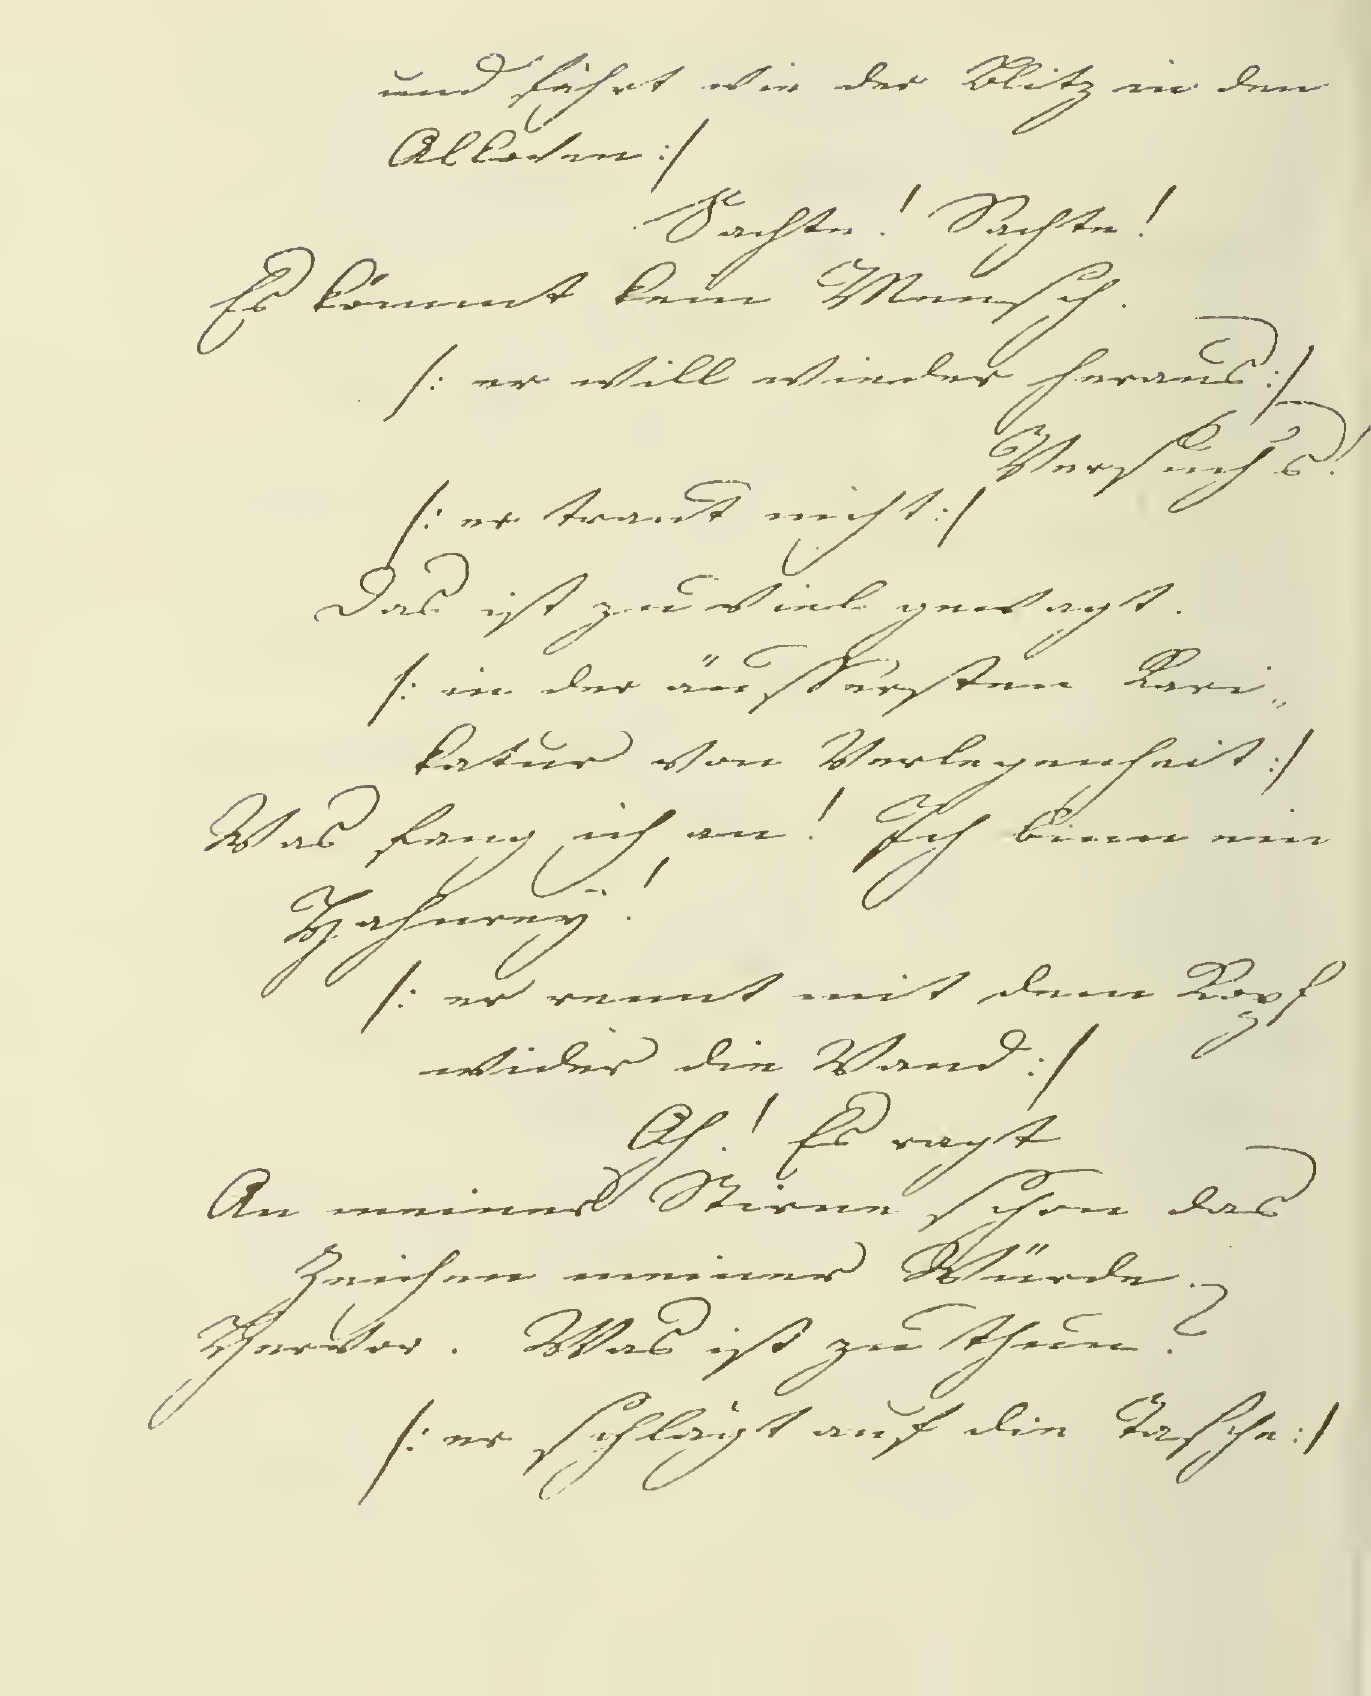 und fährt wie der Blitz in den
Alkoven :/
Sachte! Sachte!
Es kömmt kein Mensch.
/: er will wieder heraus :/
Versuchs!
/: er traut nicht :/
Das ist zu viel gewagt.
/: in der äussersten Kari„
katur von Verlegenheit :/
Was fang ich an! Ich binn ein
Hahnrey!
/: er rennt mit dem Kopf
wider die Wand :/
Ah! Es ragt
An meiner Stirne schon das
Zeichen meiner Würde
Hervor. Was ist zu thun?
/: er schlägt auf die Tasche :/